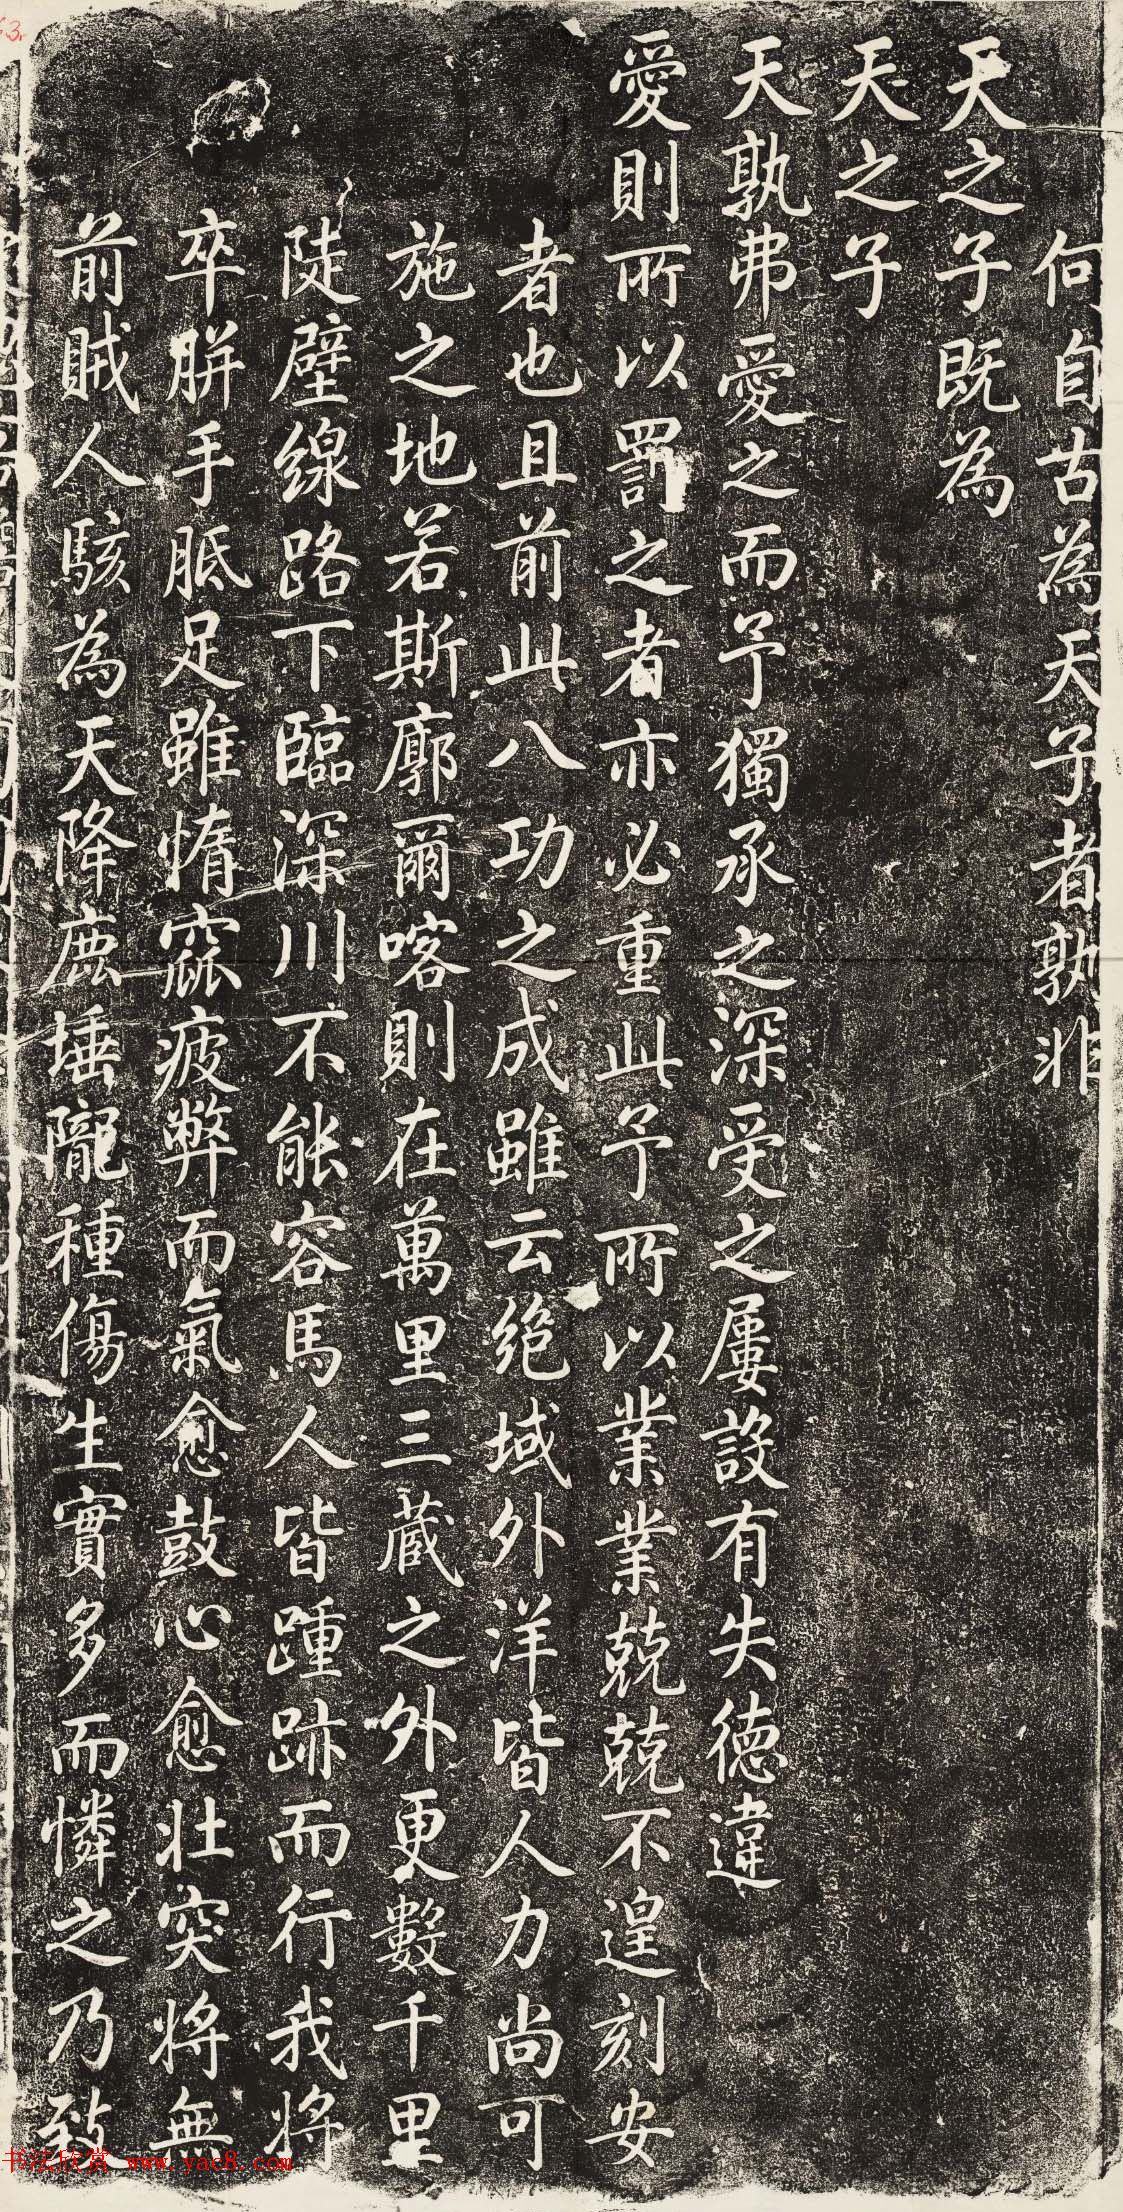 何自古為天子者孰非
天之子既為
天之子
天孰弗愛之而予獨承之深受之屢設有失德違
愛則所以罰之者亦必重此予所以業業兢兢不遑刻安
者也且前此八功之成雖云絶域外洋皆人力尚可
施之地若斯廓爾喀則在萬里三藏之外更數千里
陡壁線路下臨深川不能容馬人皆踵跡而行我將
卒胼手胝足雖惰窳疲弊而氣愈鼓心愈壯突將無
前賊人駭為天降鹿埵隴種傷生實多而憐之乃致
63
书法欣赏 www.yac8.com